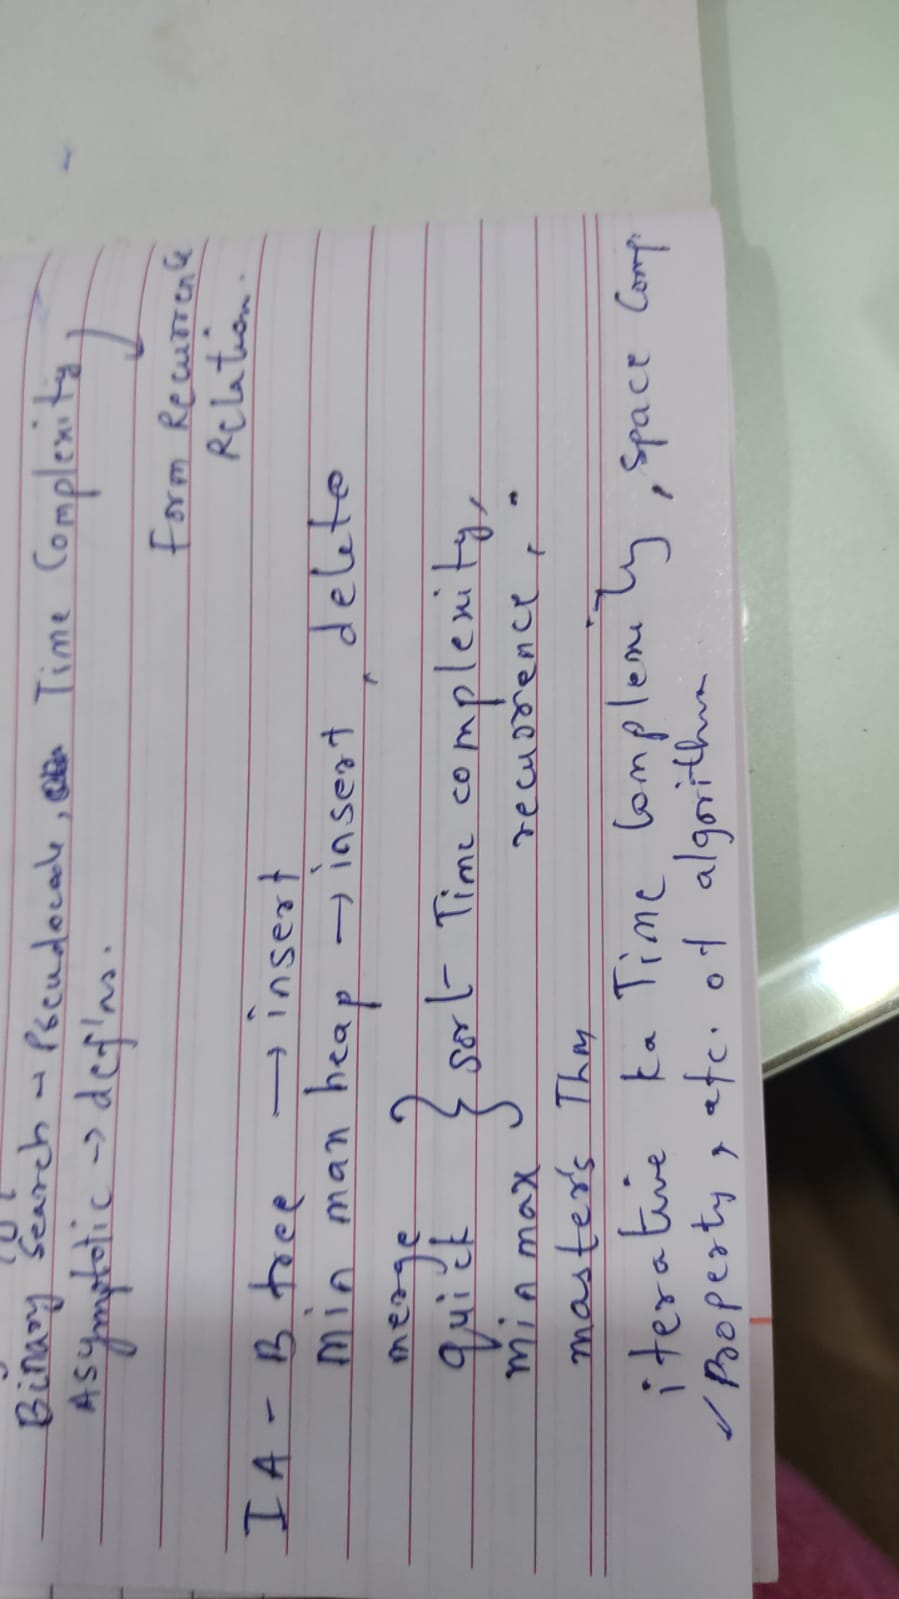 Binary Search → Pseudocode, Time Complexity,
Asymptotic → def'ns.
Form Recurrence
Relation.
IA - B tree → insert
min max heap → insert, delete
merge
quick } sort Time complexity,
min max recurrence, "
master's Thm
iterative ka Time Complexity, space Comp.
✓ Property, etc. of algorithm